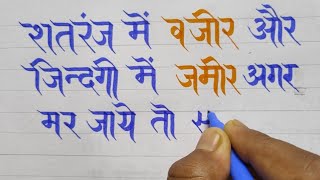 शतरंज में वजीर और
जिन्दगी में जमीर अगर
मर जाये तो